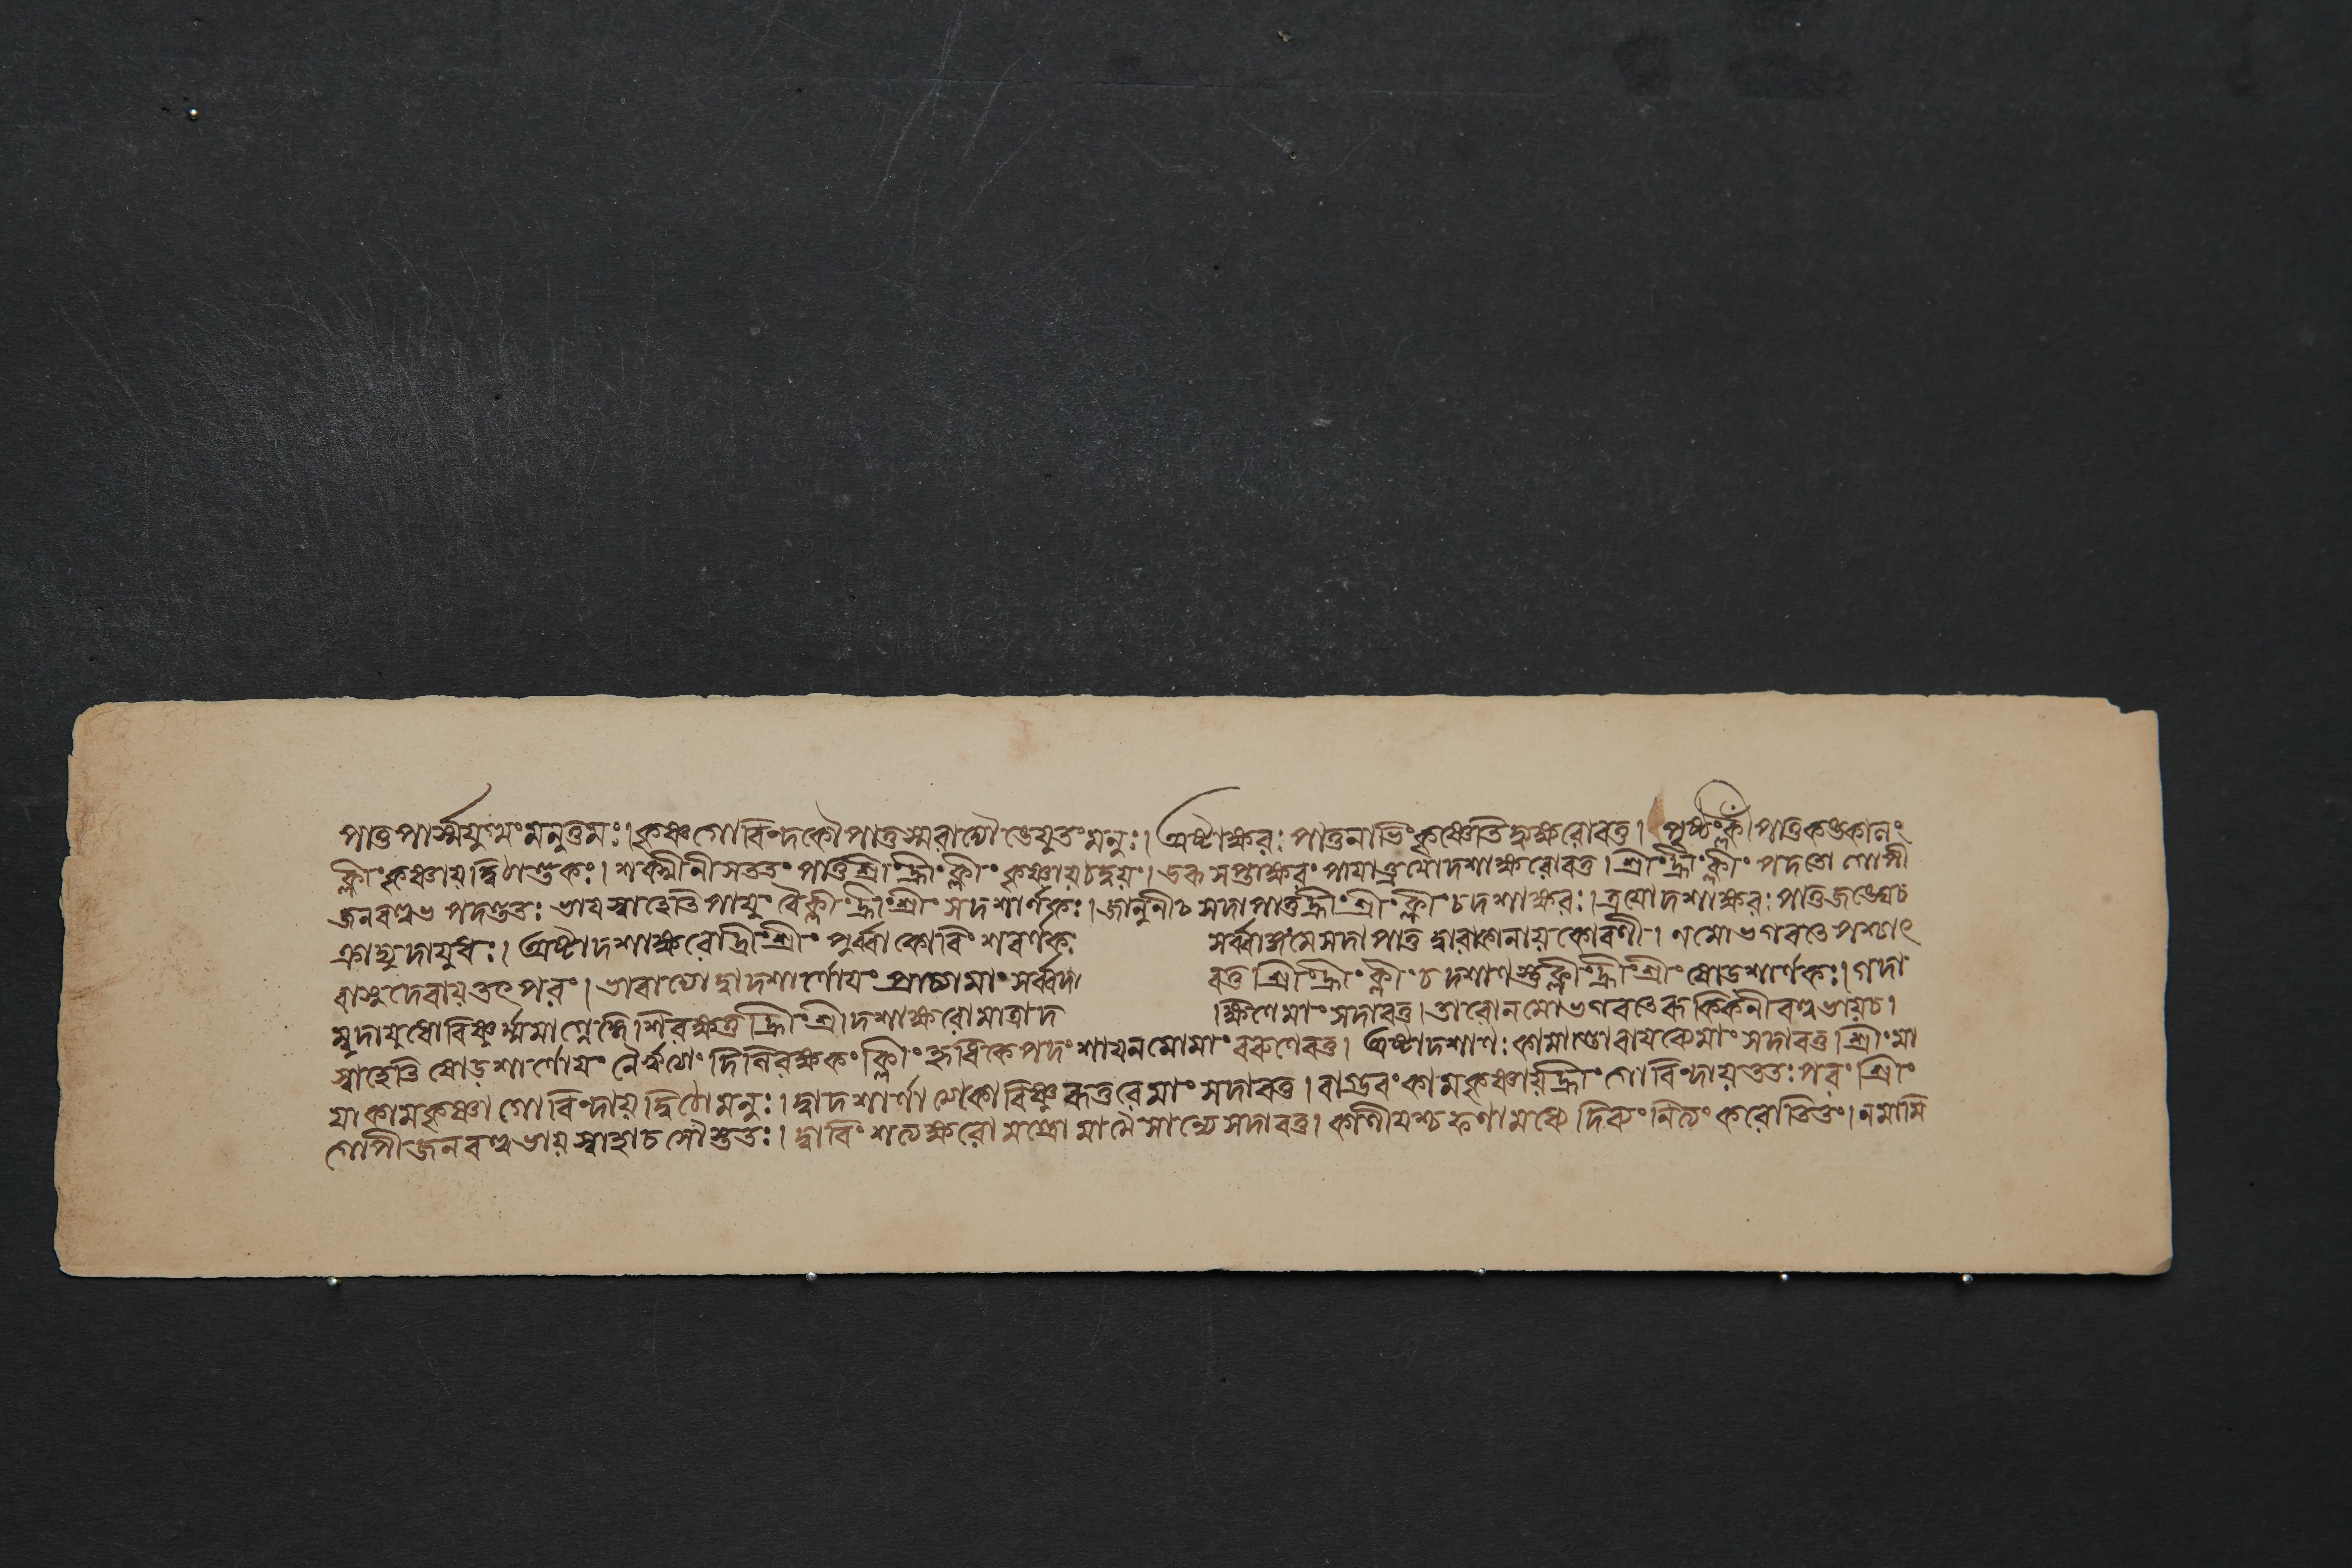 পাতু পার্শ্বযুগ্মং মনুত্তমঃ। কৃষ্ণগোবিন্দকৌ পাতু স্মরাদ্যৌ ঙেযুতং মনুঃ। অষ্টাক্ষরঃ পাতু নাভিং কৃষ্ণেতি দ্ব্যক্ষরোবতু। পৃষ্ঠং ক্লীঁ পাতু
ক্লীং কৃষ্ণায় দ্বিঠান্তকঃ। সততং পাতু শ্রীং হ্রীং ক্লীং কৃষ্ণায় ঠদ্বয়ং। সপ্তাক্ষরং পায়াত্ত্রয়োদশাক্ষরোবতু। শ্রীং হ্রীং ক্লীং পদতো গোপী
জনবল্লভ পদন্ততঃ ভায় স্বাহেতি পায়ুং বৈ ক্লীং হ্রীং শ্রীং সদশার্ণকঃ। জানুনী চ সদা পাতু হ্রীং শ্রীং ক্লীং চ দশাক্ষরঃ। ত্রয়োদশাক্ষরঃ পাতু জঙ্ঘে চ
অষ্টাদশাক্ষরো হ্রীং শ্রীং পূর্ব্বকো বিংশবর্ণকঃ সর্ব্বাঙ্গং মে সদা পাতু দ্বারকানায়কো বলী। নমো ভগবতে পশ্চাৎ
বাসুদেবায় তৎপরং। তারাদ্যো দ্বাদশার্ণোয়ং প্রাচ্যাং মাং সর্ব্বদা বতু শ্রীং হ্রীং ক্লীং চ দশার্ণস্তু ক্লীং হ্রীং শ্রীং ষোড়শার্ণকঃ। গদা
দ্যুদায়ুধো বিষ্ণুর্ম্মামাগ্নেদ্দিশি রক্ষতু হ্রীং শ্রীং দশাক্ষরো মন্ত্রো দ ক্ষিণে মাং সদাবতু। তারো নমো ভগবতে রুক্মিনীবল্লভায় চ।
স্বাহেতি ষোড়শার্ণোয়ং নৈরৃত্যাং দিশি রক্ষতু ক্লীং হৃষীকে পদং শায় নমো মাং বরুণেবতু। অষ্টাদশার্ণঃ কামান্তো বায়ব্যে মাং সদাবতু শ্রীং মা
য়া কামকৃষ্ণা গোবিন্দায় দ্বিঠো মনুঃ। দ্বাদশার্ণাত্মকো বিষ্ণু রুত্তরে মাং সদাবতু। বাগ্ভবং কামকৃষ্ণায় হ্রীং গোবিন্দায় ততঃ পরং শ্রীং
গোপীজনবল্লভায় স্বাহা চ সৌস্ততঃ। দ্বাবিংশত্যক্ষরো মন্ত্রো মামৈশান্যে সদাবতু। কালীয়স্য ফণামধ্যে দিব্যং নৃত্যং করোতি তং। নমামি